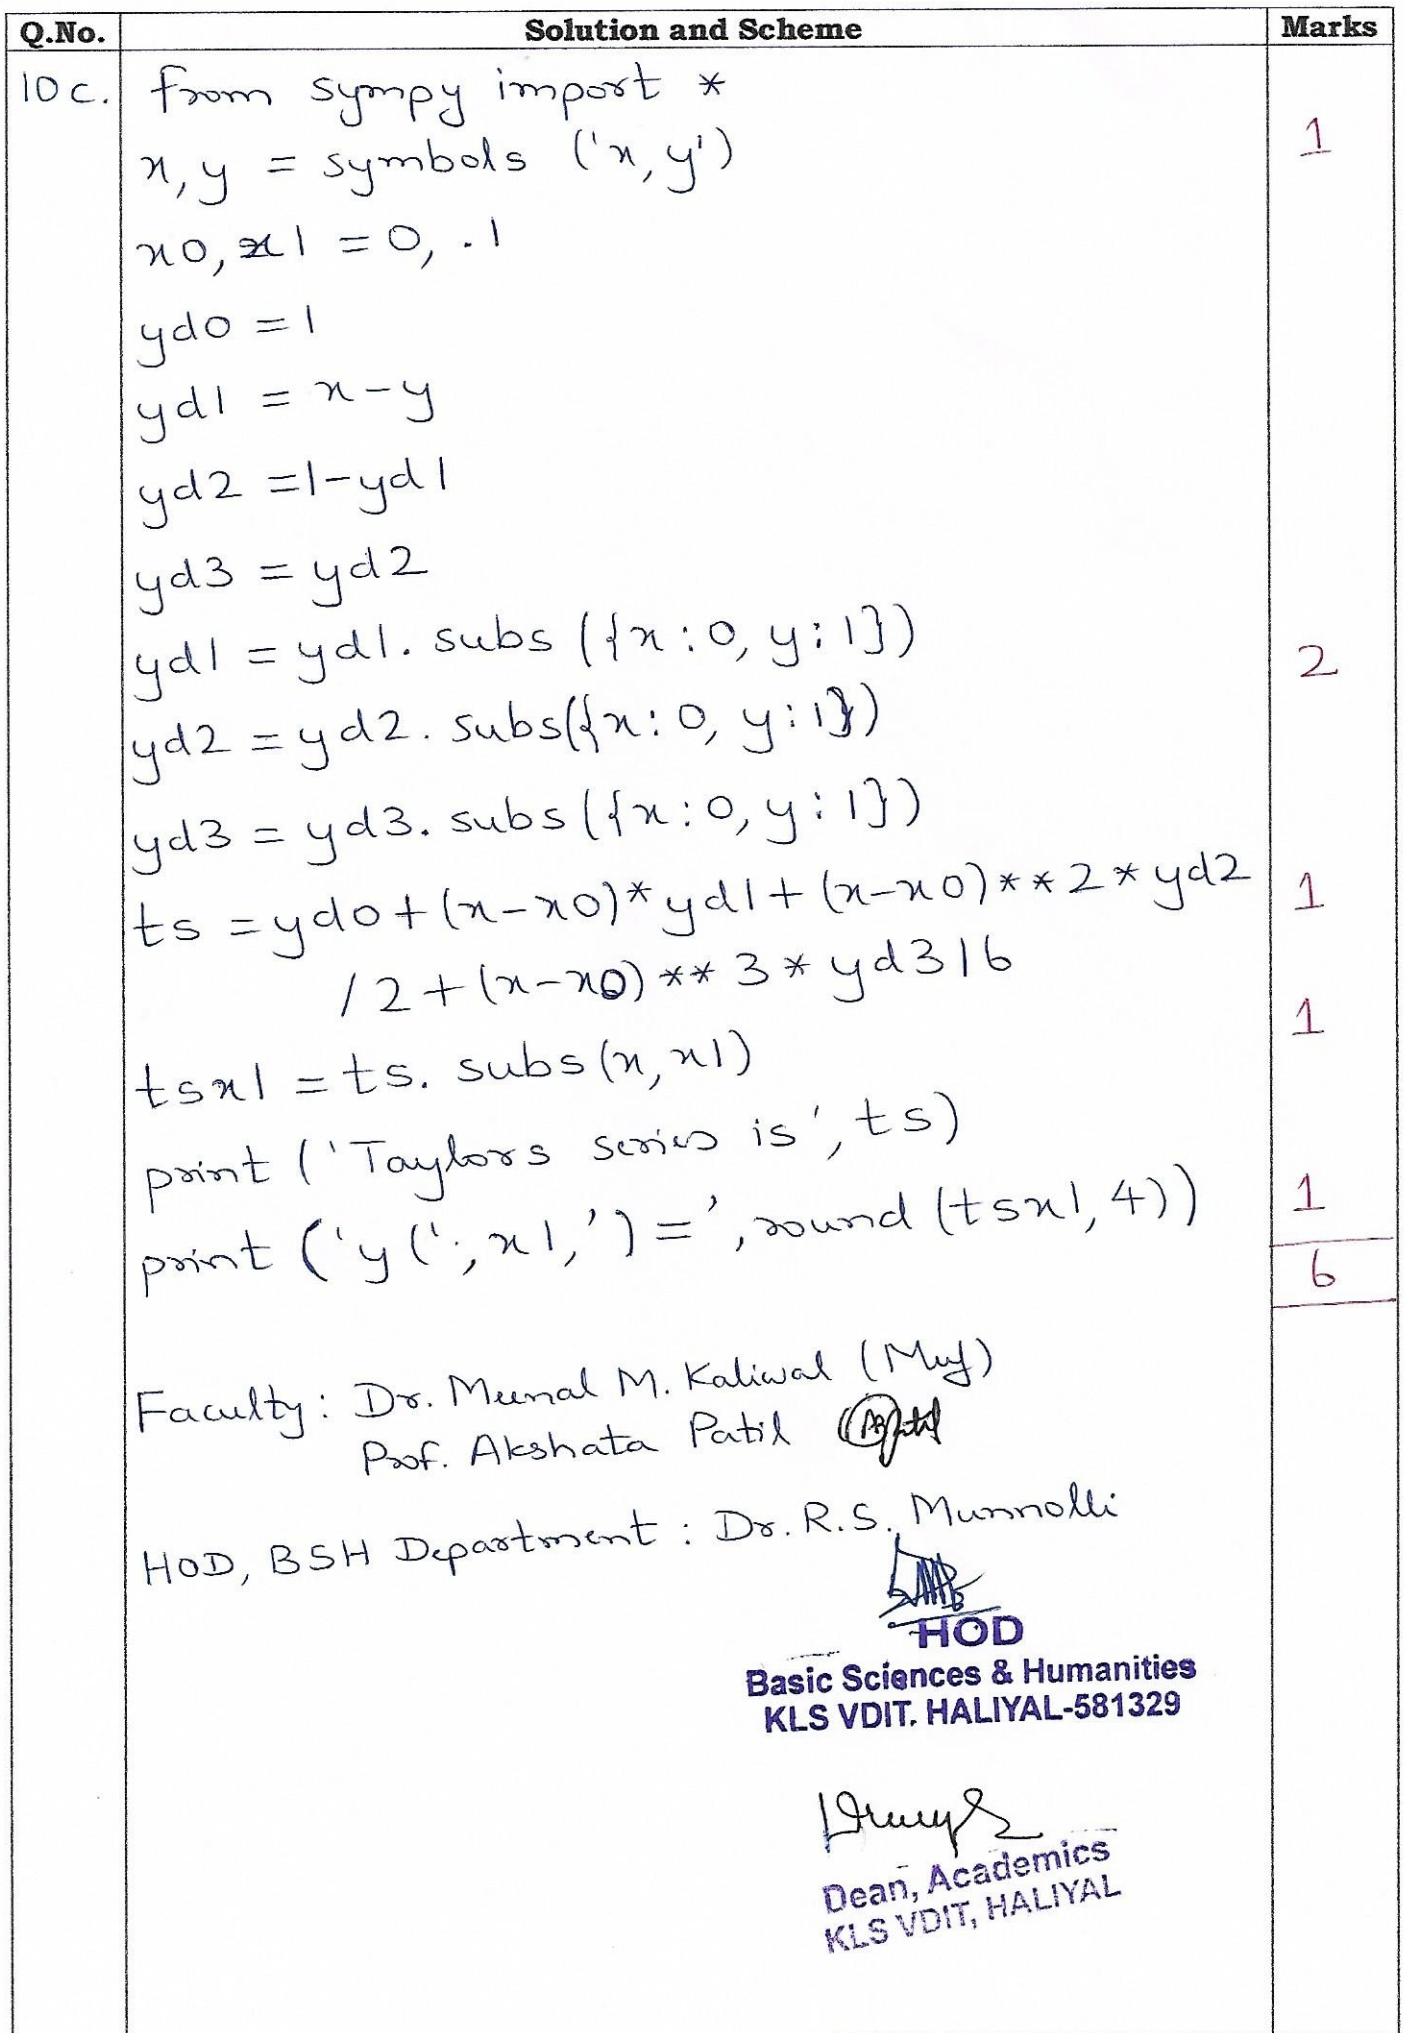 Q.No. Solution and Scheme Marks
10 c. from sympy import *
x, y = symbols ('x, y') 1
x0, x1 = 0, .1
yd0 = 1
yd1 = x-y
yd2 =1-yd1
yd3 = yd2
yd1 = yd1. subs ({x:0, y:1})
2
yd2 = yd2. subs({x:0, y:1})
yd3 = yd3. subs ({x:0, y:1})
ts = yd0+(x-x0)*yd1+(x-x0)**2*yd2 1
/2+(x-x0)**3*yd3/6
1
tsx1 = ts. subs (x, x1)
print ('Taylors series is', ts)
print ('y(', x1,')=', round (tsx1, 4)) 1
6
Faculty: Dr. Meenal M. Kaliwal
Prof. Akshata Patil
HOD, BSH Department : Dr. R.S. Munnolli
HOD
Basic Sciences & Humanities
KLS VDIT. HALIYAL-581329
Dean, Academics
KLS VDIT, HALIYAL